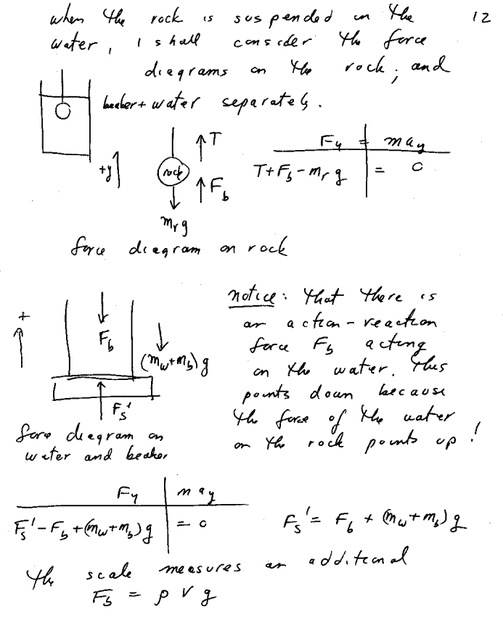 12
when the rock is suspended in the
water, I shall consider the force
diagrams on the rock, and
beaker + water separately.
+y
T
rock
F_b
m_r g
F_y = m a_y
T + F_b - m_r g = 0
force diagram on rock
+
F_b
(m_w + m_b) g
F_s'
force diagram on
water and beaker
notice: that there is
an action-reaction
force F_b acting
on the water. This
points down because
the force of the water
on the rock points up!
F_y m a_y
F_s' - F_b + (m_w + m_b) g = 0
F_s' = F_b + (m_w + m_b) g
the scale measures an additional
F_b = ρ V g